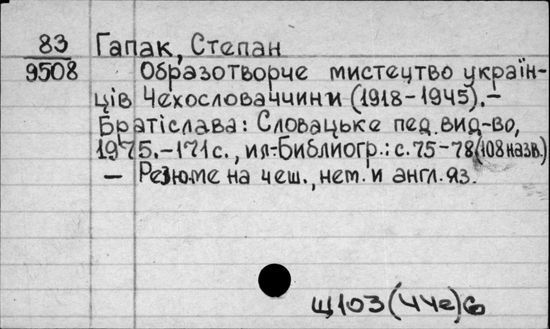 83 Гапак, Степан
9508 Образотворче мистецтво україн-
ців Чехословаччини (1918-1945).-
Братіслава: Словацьке пед. вид-во,
1975.-171с., ил.-Библиогр.: с. 75-78 (108 назв.)
- Резюме на чеш., нем. и англ. яз.
Щ103(4Че)6